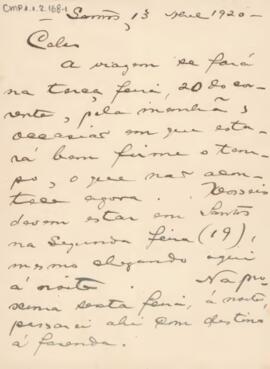 CMP.1.1.2.168-1
Santos, 13 Abril 1920 -
A viagem se fará
na terça feira, 20 do cor-
rente, pela manhã;
occasião em que esta-
rá bem firme o tem-
po, o que não acon-
tece agora.
devem estar em Santos
na Segunda feira (19),
mesmo chegando aqui
á noite. Na pro-
xima sexta feira, á noite,
passarei ahi com destino
á fazenda.